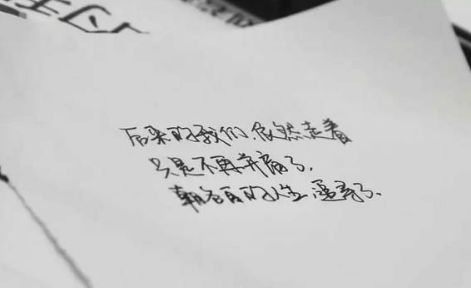 后来的我们，依然走着
只是不再并肩了，
朝各自的人生追寻了。